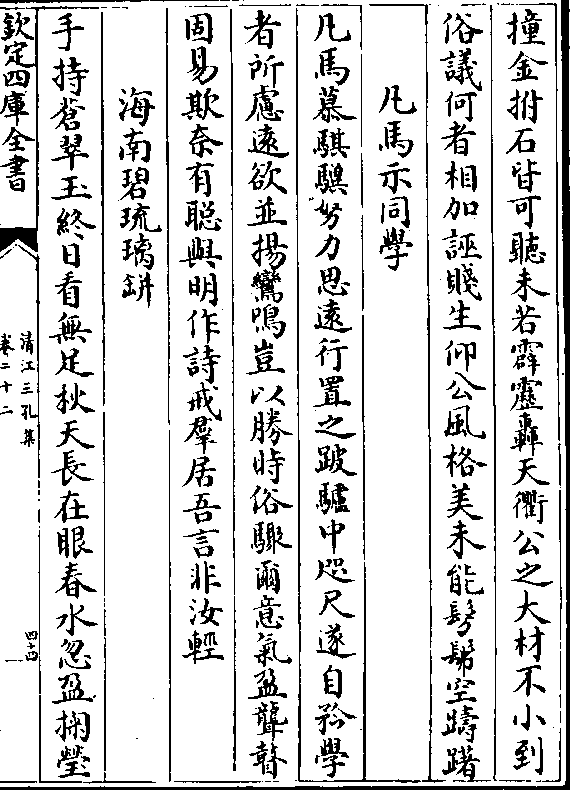 撞金拊石皆可聽未若霹靂轟天衢公之大材不小到
俗議何者相加誣賤生仰公風格美未能髣髴空躊躇
凡馬示同學
凡馬慕騏驥努力思遠行置之跛驢中咫尺遂自矜學
者所慮遠欲並揚鸞鳴豈以勝時俗驟爾意氣盈聾瞽
固易欺奈有聡與明作詩戒羣居吾言非汝輕
海南碧琉璃缾
手持蒼翠玉終日看無足秋天長在眼春水忽盈掬瑩
欽定四庫全書
清江三孔集
卷二十二
四十四